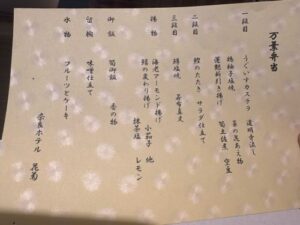 万葉弁当
一段目
うぐいすカステラ 道明寺蒸し
梅柚子塩焼 菜の花あえ物
蓮麩新引き揚げ 筍土佐煮 空豆
二段目
鰹のたたき サラダ仕立て
三段目
鯛塩焼 昆布真丈
揚物
海老アーモンド揚げ 小茄子 他
鱚の変わり揚げ 抹茶塩 レモン
御飯
筍御飯 香の物
留椀
味噌仕立て
水物
フルーツとケーキ
奈良ホテル 花菊